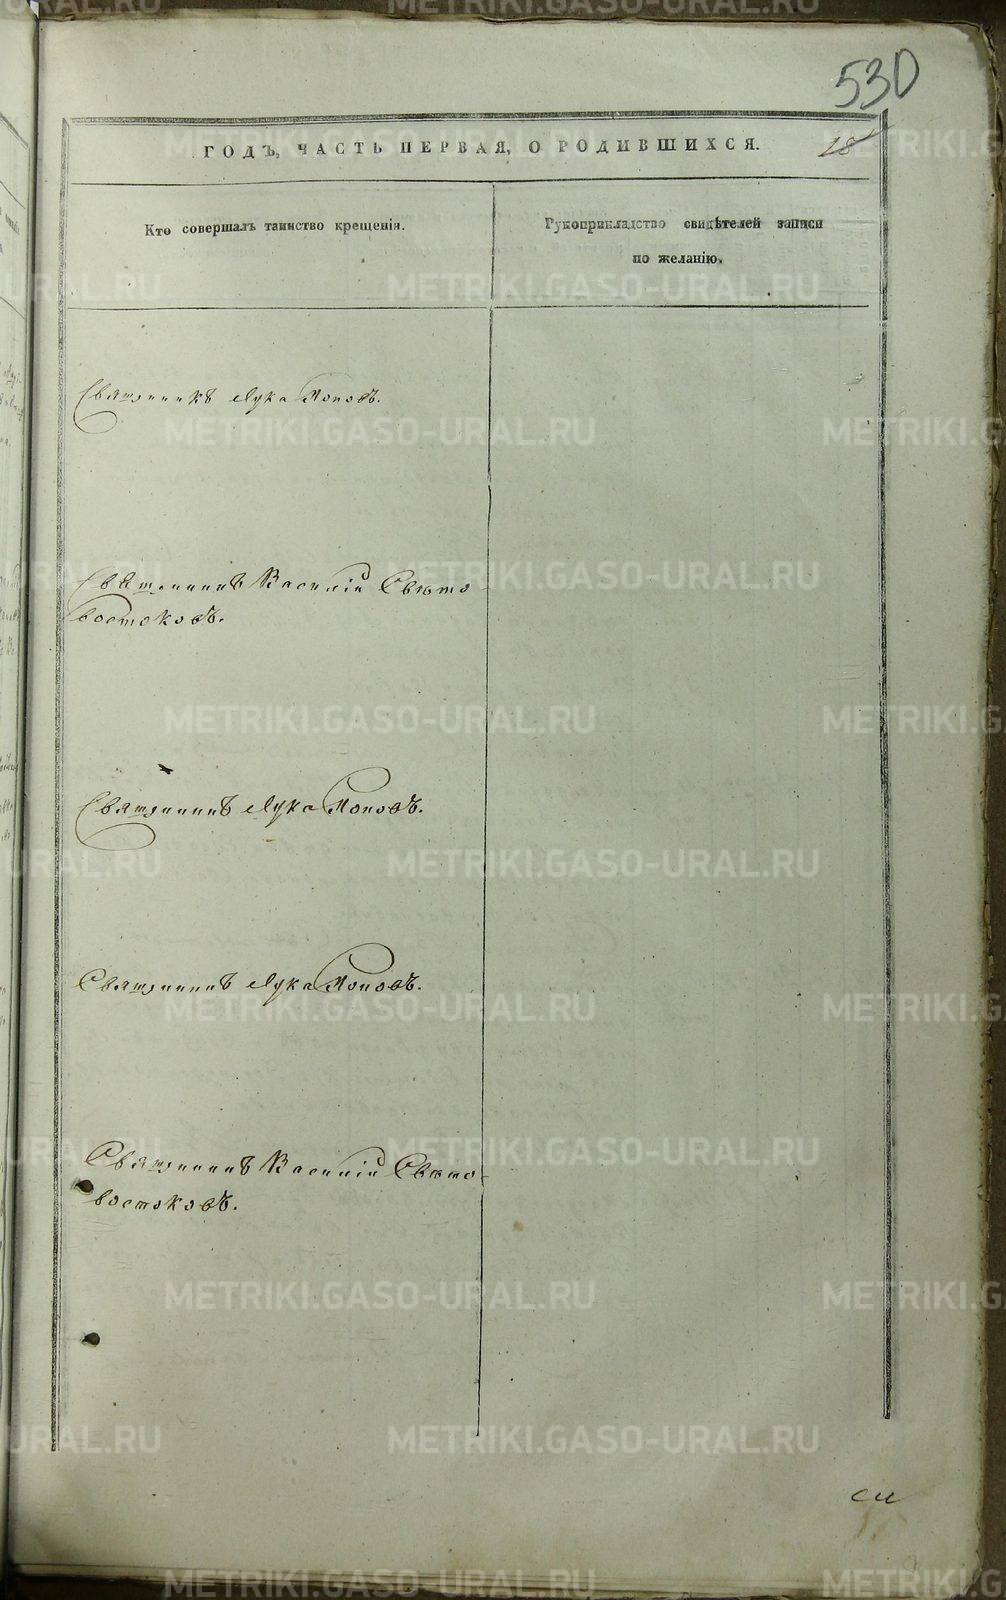 530
18
ГОДЪ, ЧАСТЬ ПЕРВАЯ, О РОДИВШИХСЯ.
Кто совершалъ таинство крещенія.
Рукоприкладство свидѣтелей записи
по желанію.
Священникъ Лука Поповъ.
Священникъ Василій Свѣто-
востоковъ.
Священникъ Лука Поповъ.
Священникъ Лука Поповъ.
Священникъ Василій Свѣто-
востоковъ.
METRIKI.GASO-URAL.RU